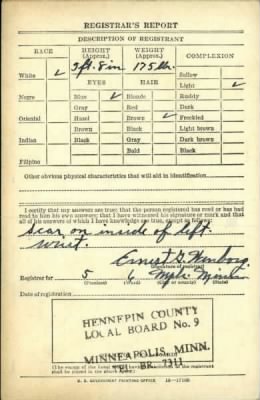 REGISTRAR'S REPORT
DESCRIPTION OF REGISTRANT
RACE HEIGHT (Approx.) WEIGHT (Approx.) COMPLEXION
White ✓ 5ft. 8in 175 lb. Sallow
EYES HAIR Light ✓
Negro Blue ✓ Blonde Ruddy
Gray Red Dark
Oriental Hazel Brown ✓ Freckled
Brown Black Light brown
Indian Black Gray Dark brown
Bald Black
Filipino
Other obvious physical characteristics that will aid in identification
I certify that my answers are true; that the person registered has read or has had
read to him his own answers; that I have witnessed his signature or mark and that
all of his answers of which I have knowledge are true, except as follows:
Scar on inside of left
wrist.
Ernest G.
(Signature of registrar)
Registrar for 5 6 Mpls. Minn
(Precinct) (Ward) (City or county) (State)
Date of registration
HENNEPIN COUNTY
LOCAL BOARD No. 9
MINNEAPOLIS, MINN.
TEL. BR. 7311
(The stamp of the Local Board having jurisdiction of the registrant
shall be placed in the above space.)
U. S. GOVERNMENT PRINTING OFFICE 16—17105